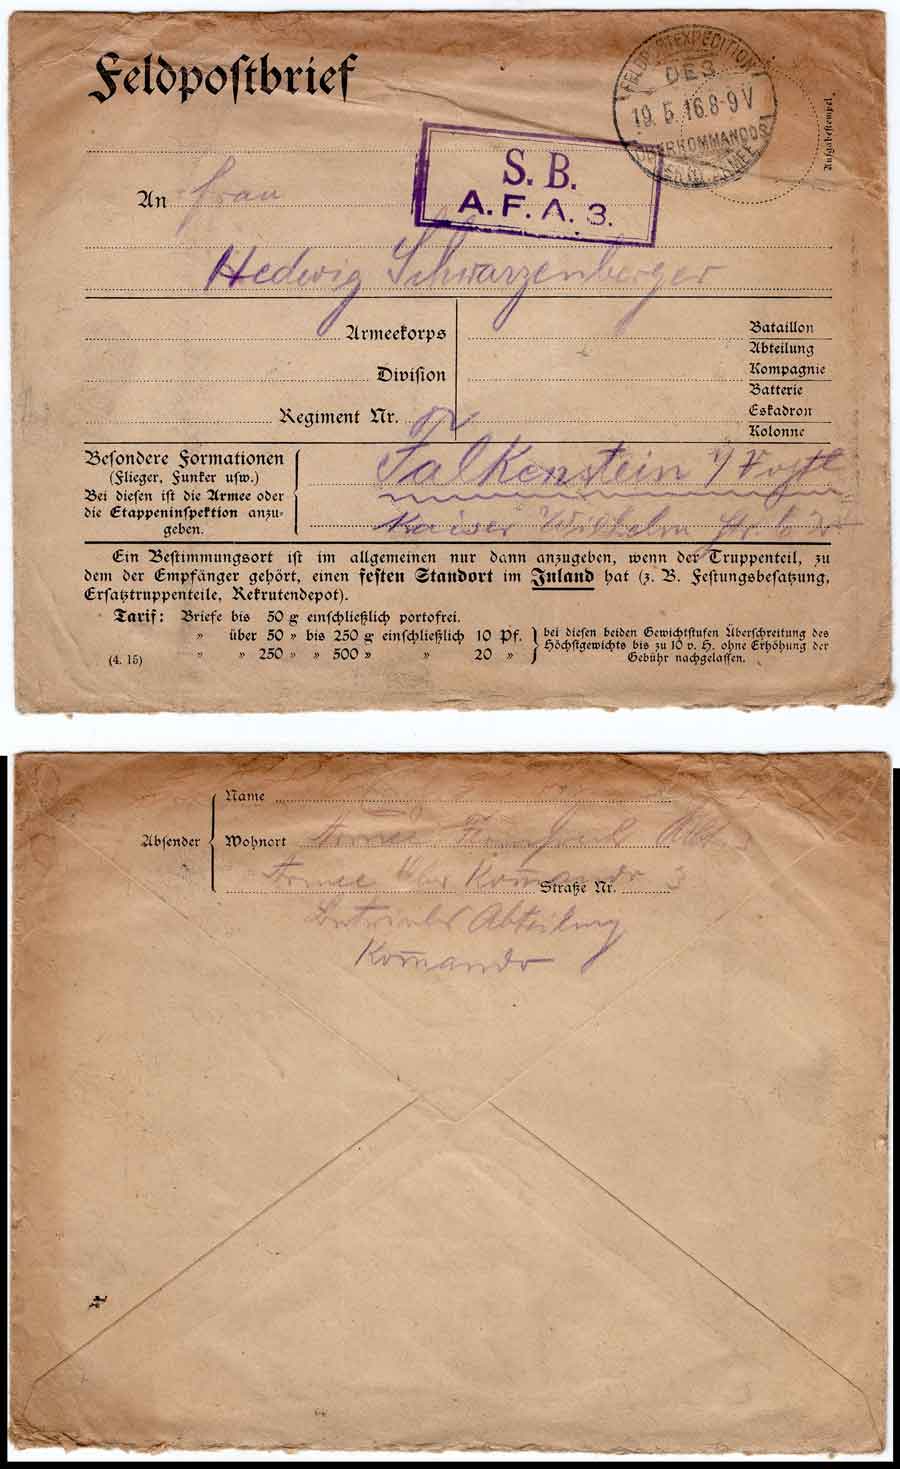 Feldpostbrief
FELDPOSTEXPEDITION
DES
19. 5. 16. 8-9 V
OBERKOMMANDOS
Aufgabestempel.
S. B.
A. F. A. 3.
An Frau
Hedwig Schwarzenberger
Armeekorps
Division
Regiment Nr.
Bataillon
Abteilung
Kompagnie
Batterie
Eskadron
Kolonne
Besondere Formationen
(Flieger, Funker usw.)
Bei diesen ist die Armee oder
die Etappeninspektion anzu-
geben.
Falkenstein i/Vogtl
Kaiser Wilhelm str
Ein Bestimmungsort ist im allgemeinen nur dann anzugeben, wenn der Truppenteil, zu
dem der Empfänger gehört, einen festen Standort im Inland hat (z. B. Festungsbesatzung,
Ersatztruppenteile, Rekrutendepot).
Tarif: Briefe bis 50 g einschließlich portofrei.
„ über 50 „ bis 250 g einschließlich 10 Pf.
„ „ 250 „ „ 500 „ „ 20 „
bei diesen beiden Gewichtstufen Überschreitung des
Höchstgewichts bis zu 10 v. H. ohne Erhöhung der
Gebühr nachgelassen.
(4. 15)
Name
Absender
Wohnort Armee
Armee Ober Komando 3
Straße Nr.
Abteilung
Komando